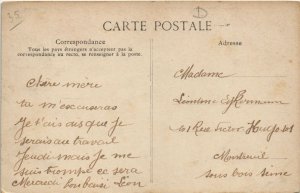 35
D
CARTE POSTALE
Correspondance
Tous les pays étrangers n'acceptent pas la
correspondance au recto, se renseigner à la poste.
Adresse
Chère mère
tu m'excuseras
Je t'ais dis que je
serais au travail
Jeudi mais je me
suis trompé ce sera
Mercredi bon baiser Léon
Madame
101 Rue Victor Hugo 101
Montreuil
sous bois Seine